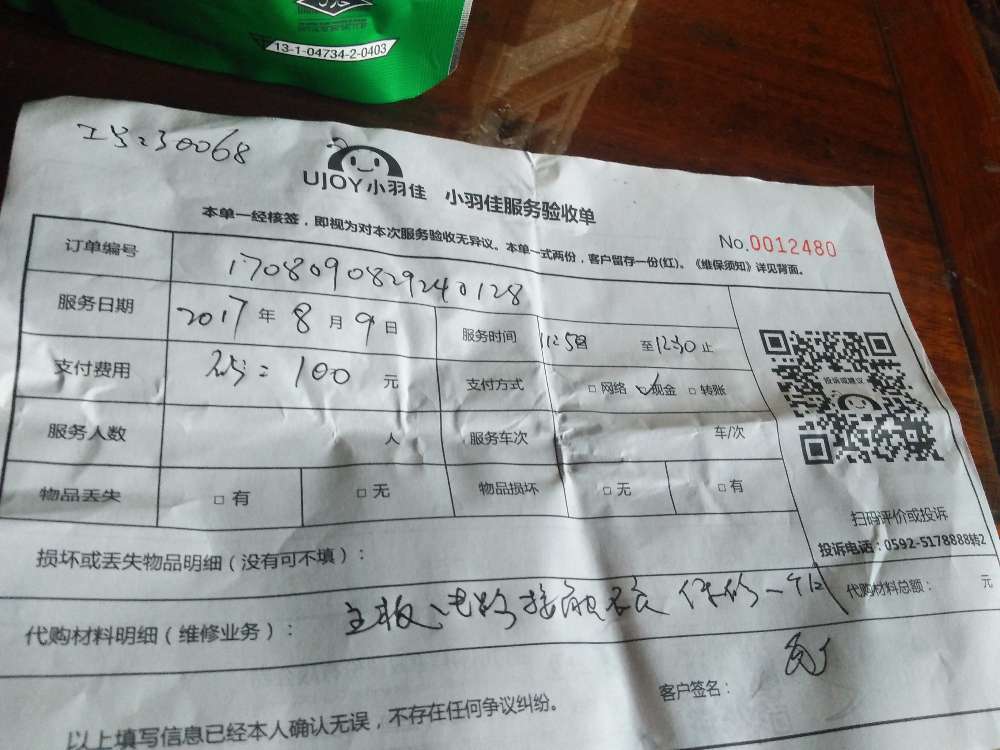 13-1-04734-2-0403
UJOY小羽佳 小羽佳服务验收单
本单一经核签，即视为对本次服务验收无异议。本单一式两份，客户留存一份(红)。《维保须知》详见背面。
No.0012480
订单编号 1708090829240128
服务日期 2017年8月9日 服务时间 至1230止
支付费用 100元 支付方式 □网络 ☑现金 □转账
服务人数 人 服务车次 车/次
物品丢失 □有 □无 物品损坏 □无 □有
投诉或建议
扫码评价或投诉
投诉电话：0592-5178888转2
损坏或丢失物品明细（没有可不填）：
代购材料明细（维修业务）： 主板、电路接触不良 保修一个月 代购材料总额： 元
客户签名：
以上填写信息已经本人确认无误，不存在任何争议纠纷。